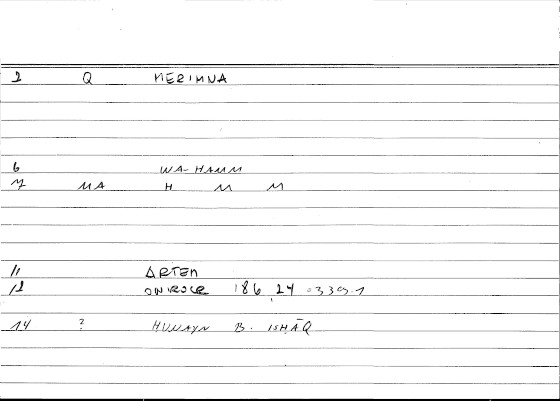 2 Q MERIMNA
6 WA-HAMM
7 MA H M M
11 ARTEM
12 ONIROCR 186,24 = 339.1
14 ? HUNAYN B. ISHĀQ